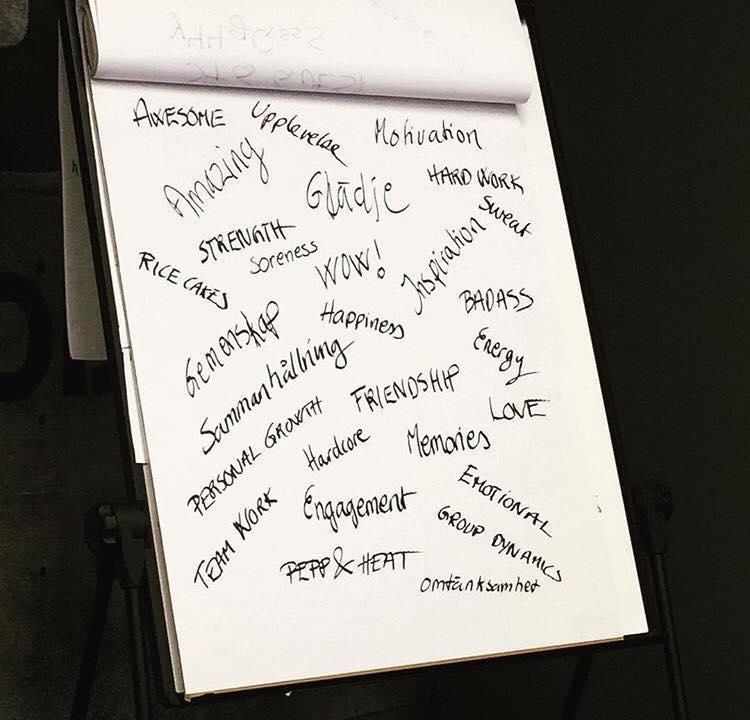 AWESOME
Upplevelse
Motivation
Amazing
Glädje
HARD WORK
Sweat
STRENGTH
soreness
RICE CAKES
WOW!
Inspiration
BADASS
Happiness
Gemenskap
Energy
Sammanhållning
FRIENDSHIP
LOVE
PERSONAL GROWTH
Hardcore
Memories
EMOTIONAL
Engagement
TEAM WORK
GROUP DYNAMICS
PEPP & HEAT
Omtänksamhet